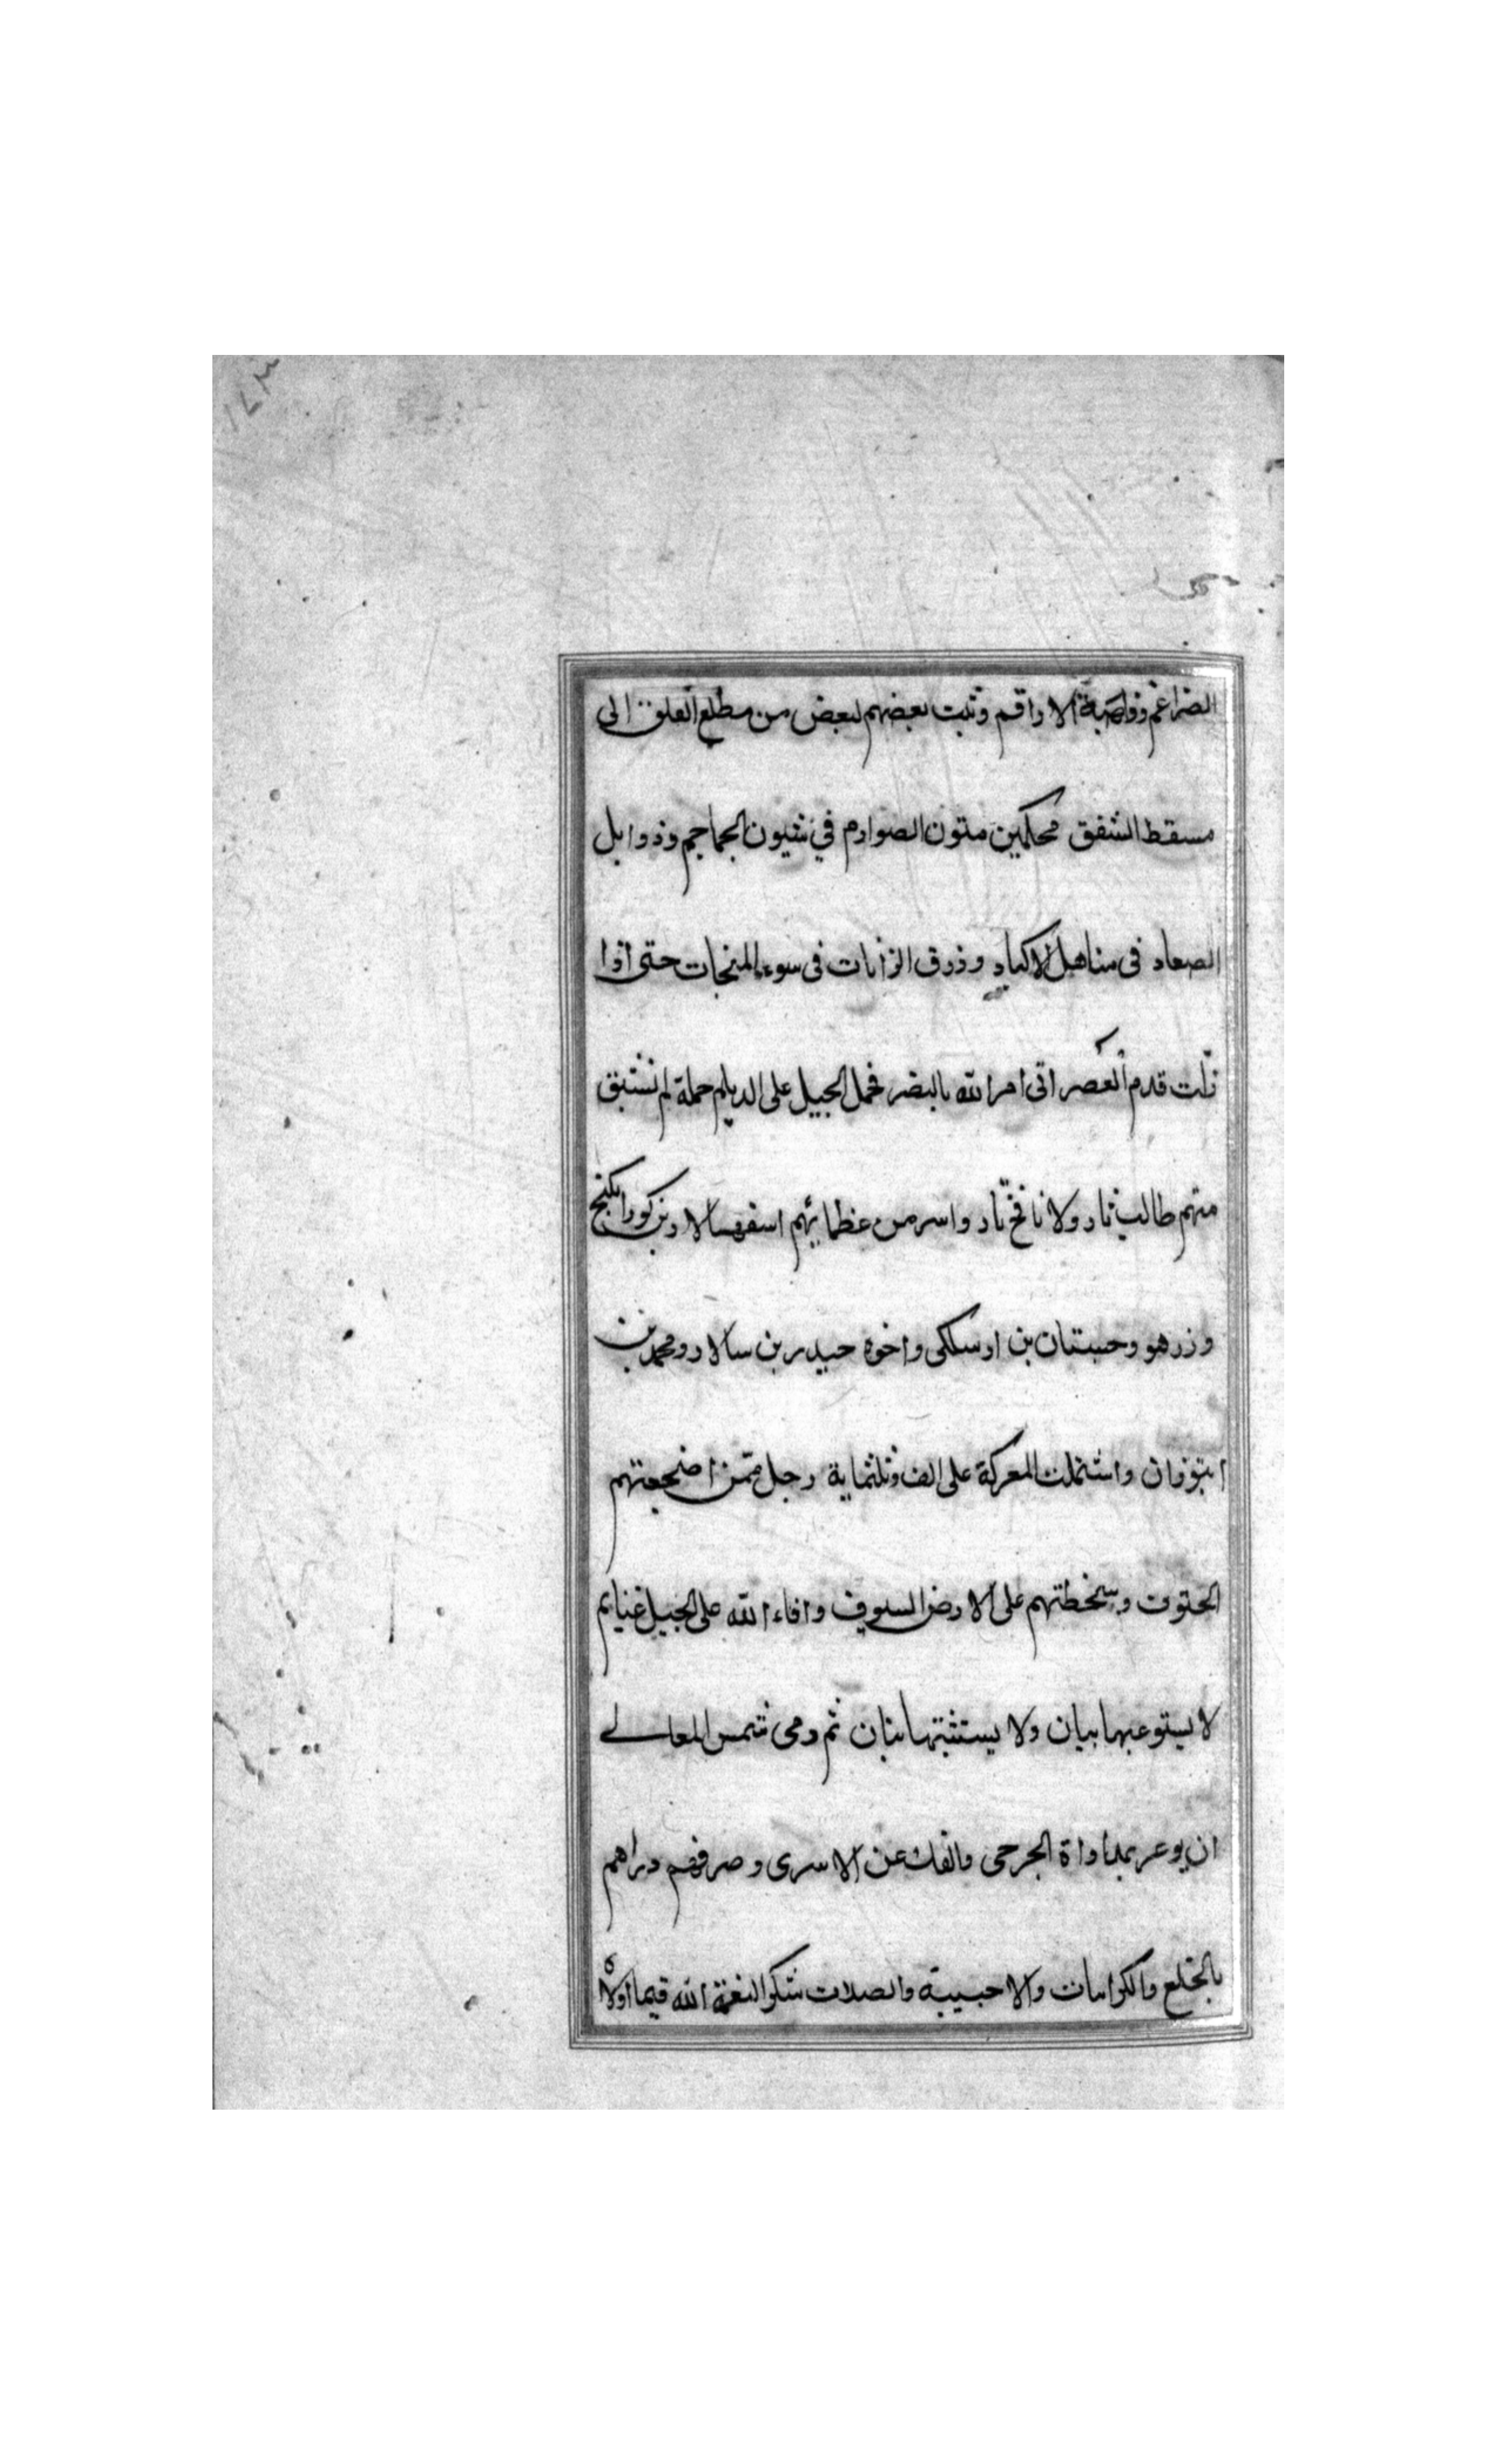 الضراغم وواصبة الاراقم وثبت بعضهم لبعض من مطلع الفلق الى
مسقط الشفق محكمين متون الصوارم في شيون الجماجم وذوابل
الصعاد فى مناهل الاكباد وزرق الزانات فى سوء المنجات حتى اذا
زلت قدم العصر اتى امر الله بالنصر فحمل الجيل على الديلم حملة لم تستبق
منهم طالب ثار ولا نافخ نار واسر من عظمايهم اسفهسالار بن كورانكنج
وزرهو وحستان بن اوسلكى واخوه حيدر بن سالار ومحمد بن
واشتملت المعركة على الف وثلثماية رجل ممن اضجعتهم
الحتوف وسخطتهم على الارض السيوف وافاء الله على الجيل غنايم
لا يستوعبها بيان ولا يستثبتها بنان ثم ومى شمس المعالے
ان يوعر بمداواة الجرحى والفك عن الاسرى وصرفهم وراهم
بالخلع والكرامات والاحبيبة والصلات شكرا لنعمة الله فيما اولاه